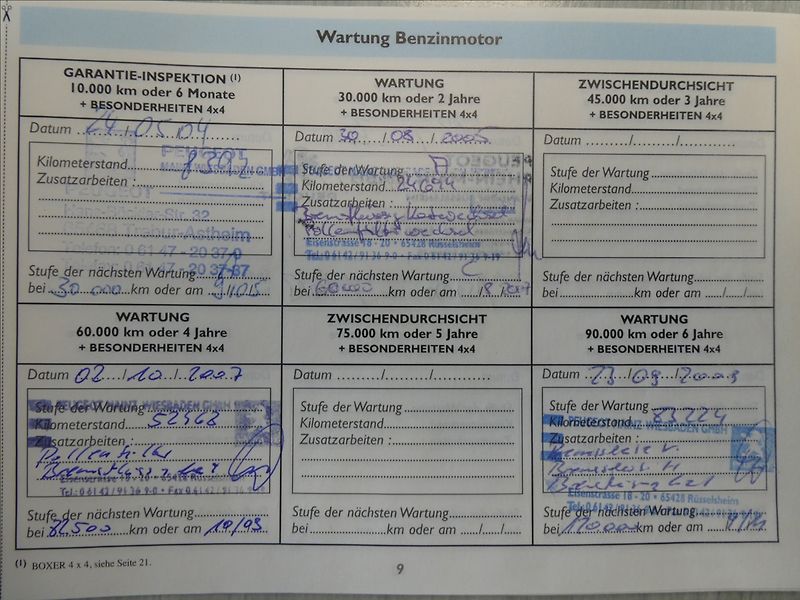 Wartung Benzinmotor
GARANTIE-INSPEKTION (1)
10.000 km oder 6 Monate
+ BESONDERHEITEN 4x4
Datum 24/05/04
Kilometerstand
Zusatzarbeiten :
PEUGEOT
Str. 32
Trebur-Astheim
Telefon: 0 61 47 - 20 37-0
20 37-67
Stufe der nächsten Wartung
bei 30 000 km oder am
WARTUNG
30.000 km oder 2 Jahre
+ BESONDERHEITEN 4x4
Datum 30/08/2005
Stufe der Wartung A
Kilometerstand 24694
Zusatzarbeiten :
Bremsflüssigkeitswechsel
Pollenfilterwechsel
Eisenstrasse 18 - 20 • 65428 Rüsselsheim
Tel.: 0 61 42 / 91 36 9-0 • Fax 0 61 42 / 91 36 9-19
Stufe der nächsten Wartung C
bei 60000 km oder am
ZWISCHENDURCHSICHT
45.000 km oder 3 Jahre
+ BESONDERHEITEN 4x4
Datum ....../....../......
Stufe der Wartung
Kilometerstand
Zusatzarbeiten :
Stufe der nächsten Wartung
bei km oder am ....../....../......
WARTUNG
60.000 km oder 4 Jahre
+ BESONDERHEITEN 4x4
Datum 02/10/2007
PEUGEOT MAINZ-WIESBADEN GMBH
Stufe der Wartung
Kilometerstand 52468
Zusatzarbeiten :
Pollenfilter
Eisenstrasse 18 - 20 • 65428 Rüsselsheim
Tel.: 0 61 42 / 91 36 9-0 • Fax 0 61 42 / 91 36 9
Stufe der nächsten Wartung
bei 82500 km oder am
ZWISCHENDURCHSICHT
75.000 km oder 5 Jahre
+ BESONDERHEITEN 4x4
Datum ....../....../......
Stufe der Wartung
Kilometerstand
Zusatzarbeiten :
Stufe der nächsten Wartung
bei km oder am ....../....../......
WARTUNG
90.000 km oder 6 Jahre
+ BESONDERHEITEN 4x4
Datum 23/09/2009
Stufe der Wartung
PEUGEOT MAINZ-WIESBADEN GMBH
Kilometerstand 83224
Zusatzarbeiten :
Eisenstrasse 18 - 20 • 65428 Rüsselsheim
Stufe der nächsten Wartung
bei km oder am
(1) BOXER 4 x 4, siehe Seite 21.
9